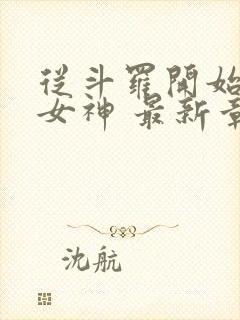 從斗羅開始
女神 最新章
沈航